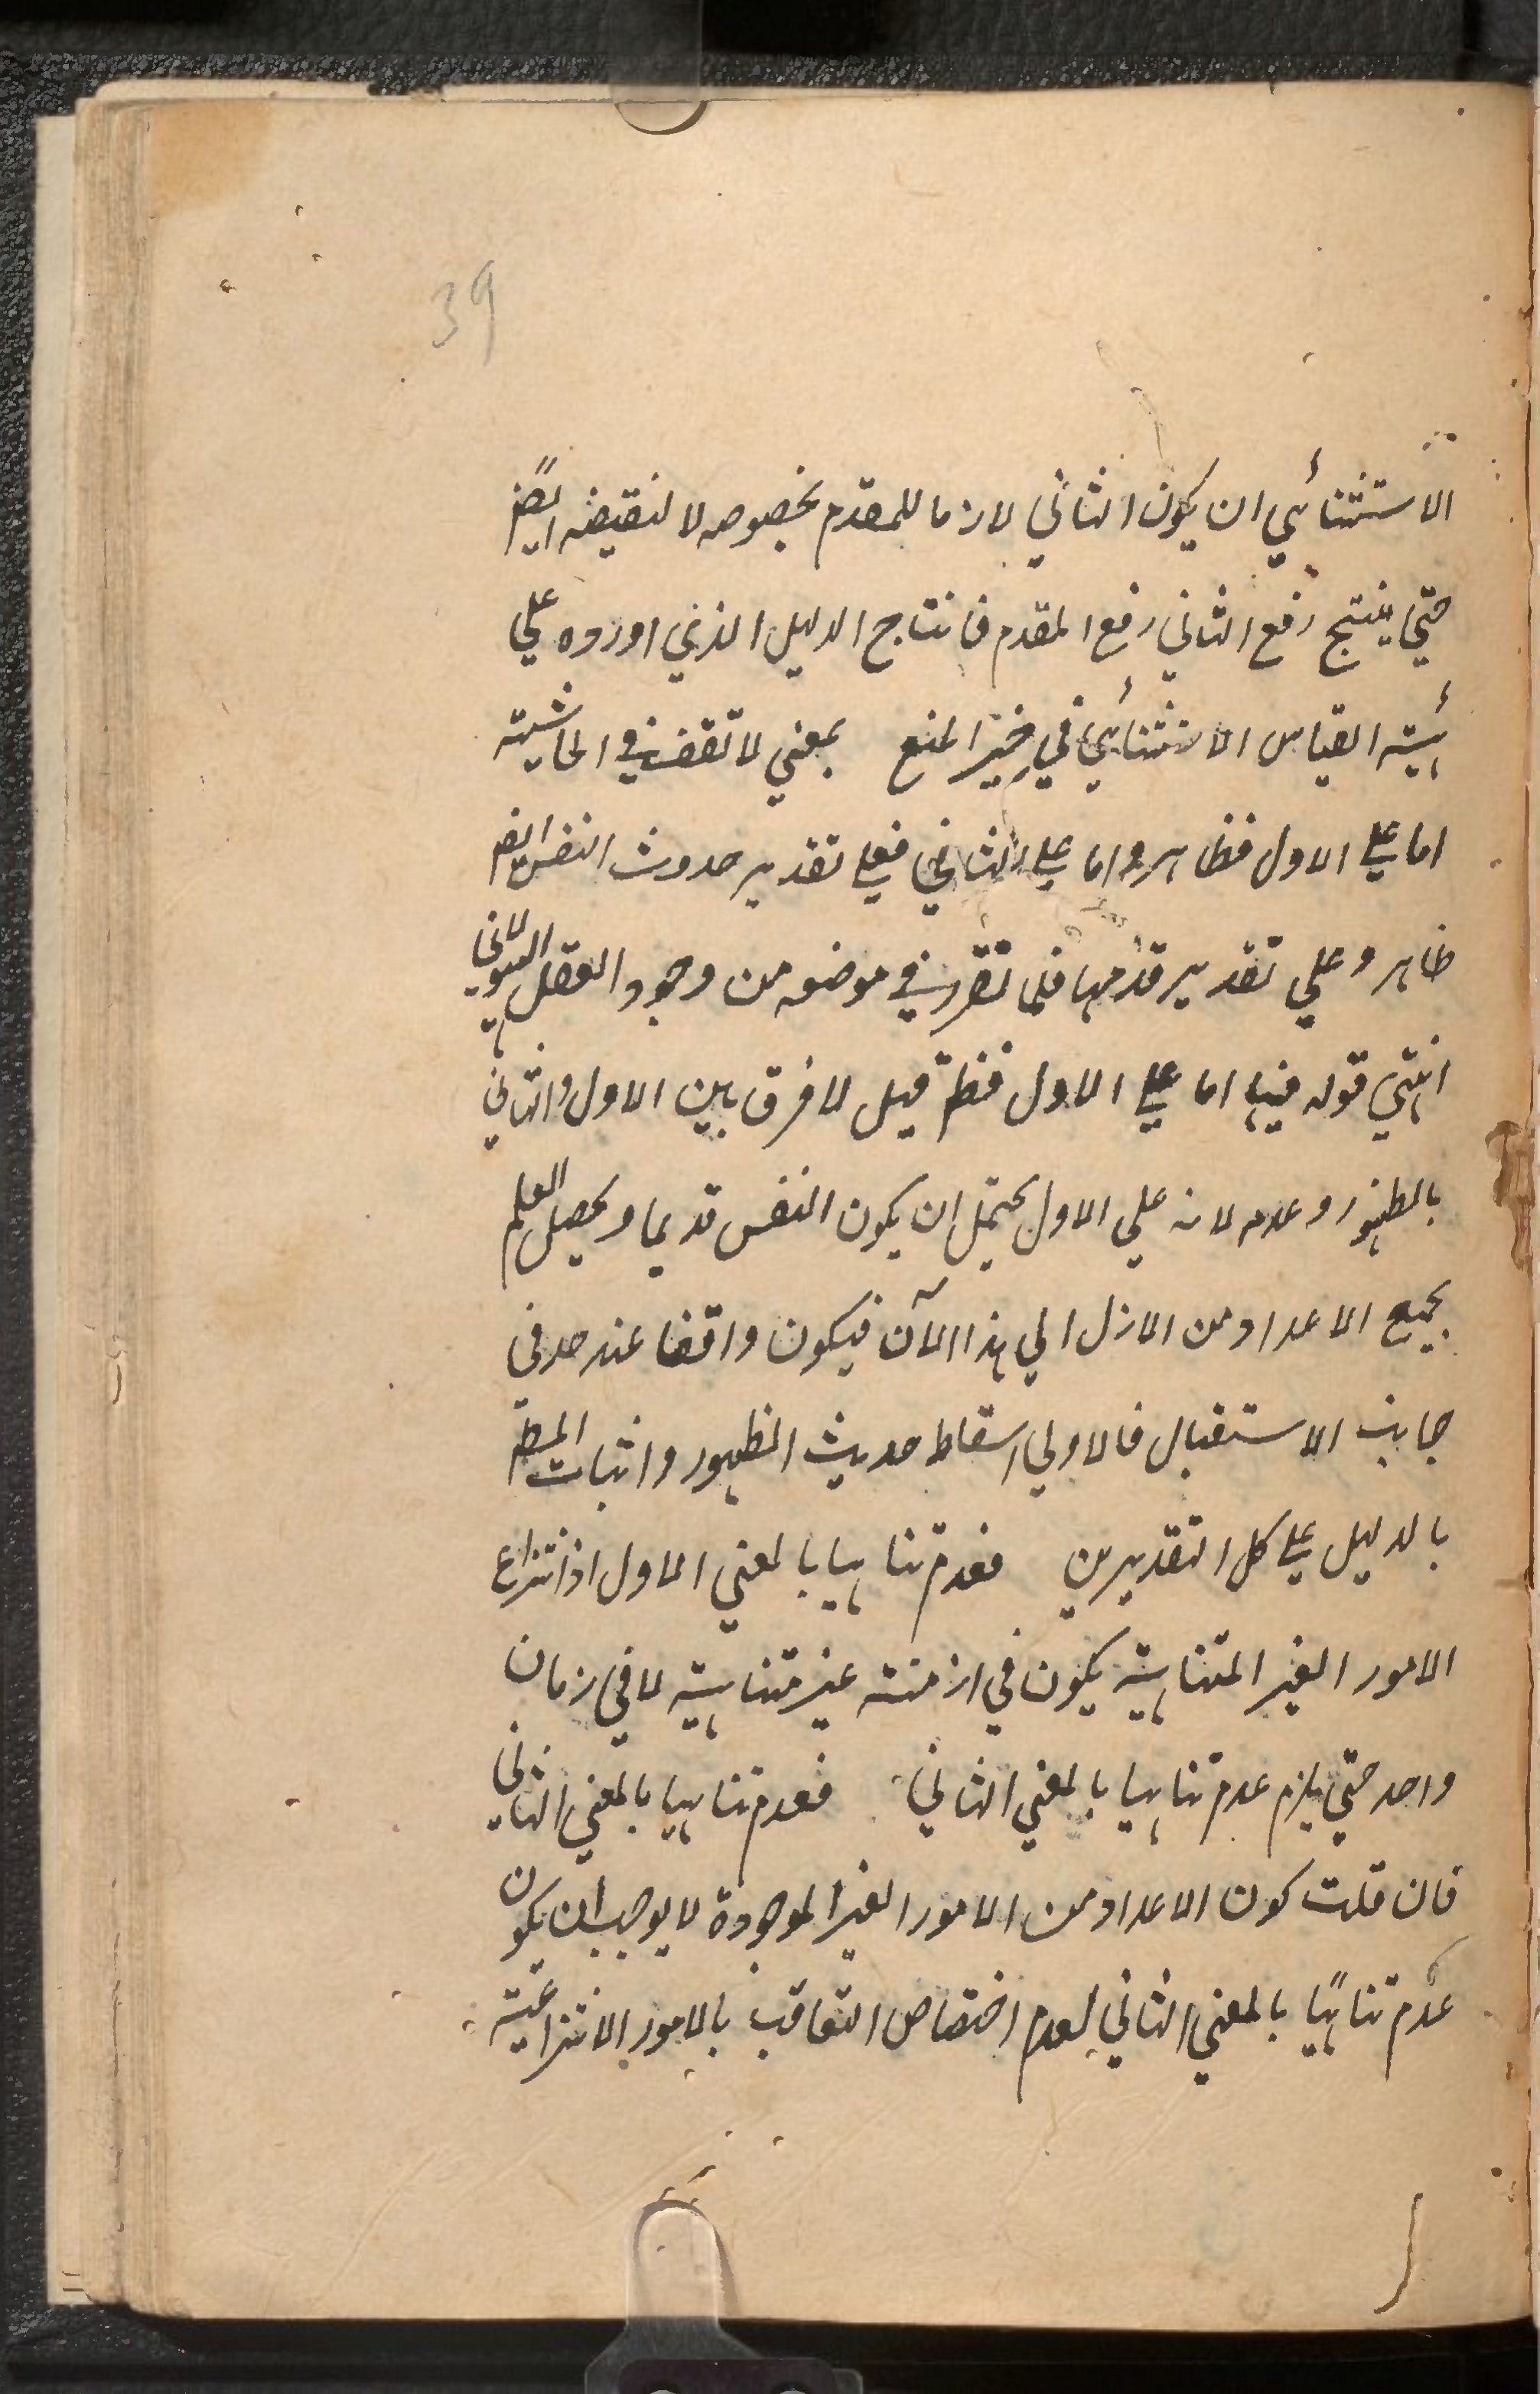 39
الاستثنائي ان يكون الثاني لازما للمقدم بخصوصه لا لنقيضه ايضً
حتي ينتج رفع الثاني رفع المقدم فانتاج الدليل الذي اورده علي
هيئة القياس الاستثنائي في حيز المنع بمعني لا تقف في الحاشية
اما علي الاول فظاهر واما علي الثاني فعلي تقدير حدوث النفس ايض
ظاهر وعلي تقدير قدمها فلما تقرر في موضعه من وجود العقل الهيولاني
انتهي قوله فيها اما علي الاول فظ قيل لا فرق بين الاول والثاني
بالظهور وعدمه لانه علي الاول يحتمل ان يكون النفس قديما ويحصل العلم
بجميع الاعداد من الازل الي هذا الآن فيكون واقفا عند حد في
جانب الاستقبال فالاولي اسقاط حديث الظهور واثبات المط
بالدليل علي كل التقديرين فعدم تناهيها بالمعني الاول اذ انتزاع
الامور الغير المتناهية يكون في ازمنة غير متناهية لا في زمان
واحد حتي يلزم عدم تناهيها بالمعني الثاني فعدم تناهيها بالمعني الثاني
فان قلت كون الاعداد من الامور الغير الموجودة لا يوجب أن يكون
عدم تناهيًا بالمعني الثاني لعدم اختصاص التعاقب بالامور الانتزاعية